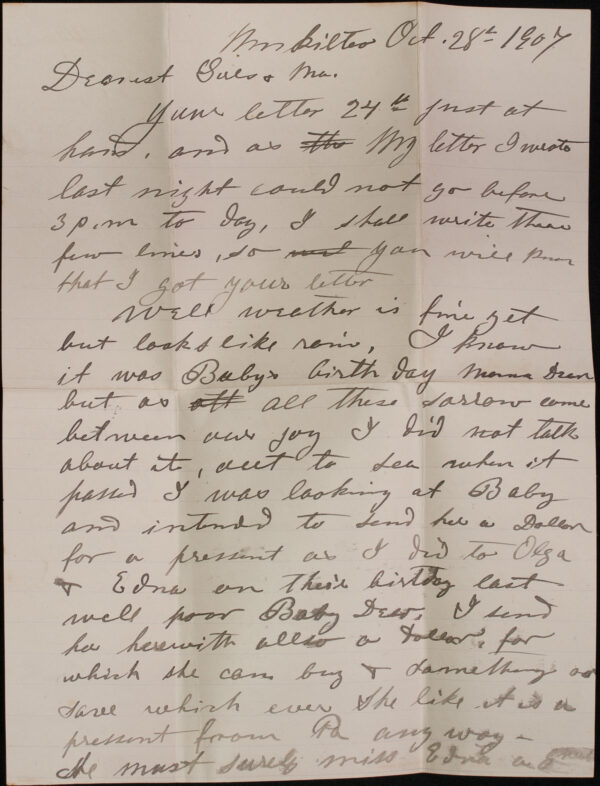 Mukilteo Oct. 28th 1907
Dearest Girls & Ma.
Your letter 24th just at
hand, and as the My letter I wrote
last night could not go before
3 p.m to day, I shall write these
few lines, so you will know
that I got your letter
Well weather is fine yet
but looks like rain, I know
it was Babys birth day Mama Dear
but as all these sorrow came
between our joy I did not talk
about it, out to sea when it
passed I was looking at Baby
and intended to send her a Dollar
for a present as I did to Olga
& Edna on their birtday last
well poor Baby Dear, I send
her herewith allso a Dollar, for
which she can buy & something or
save which ever she like it is a
present from Pa any way -
She must surely miss Edna